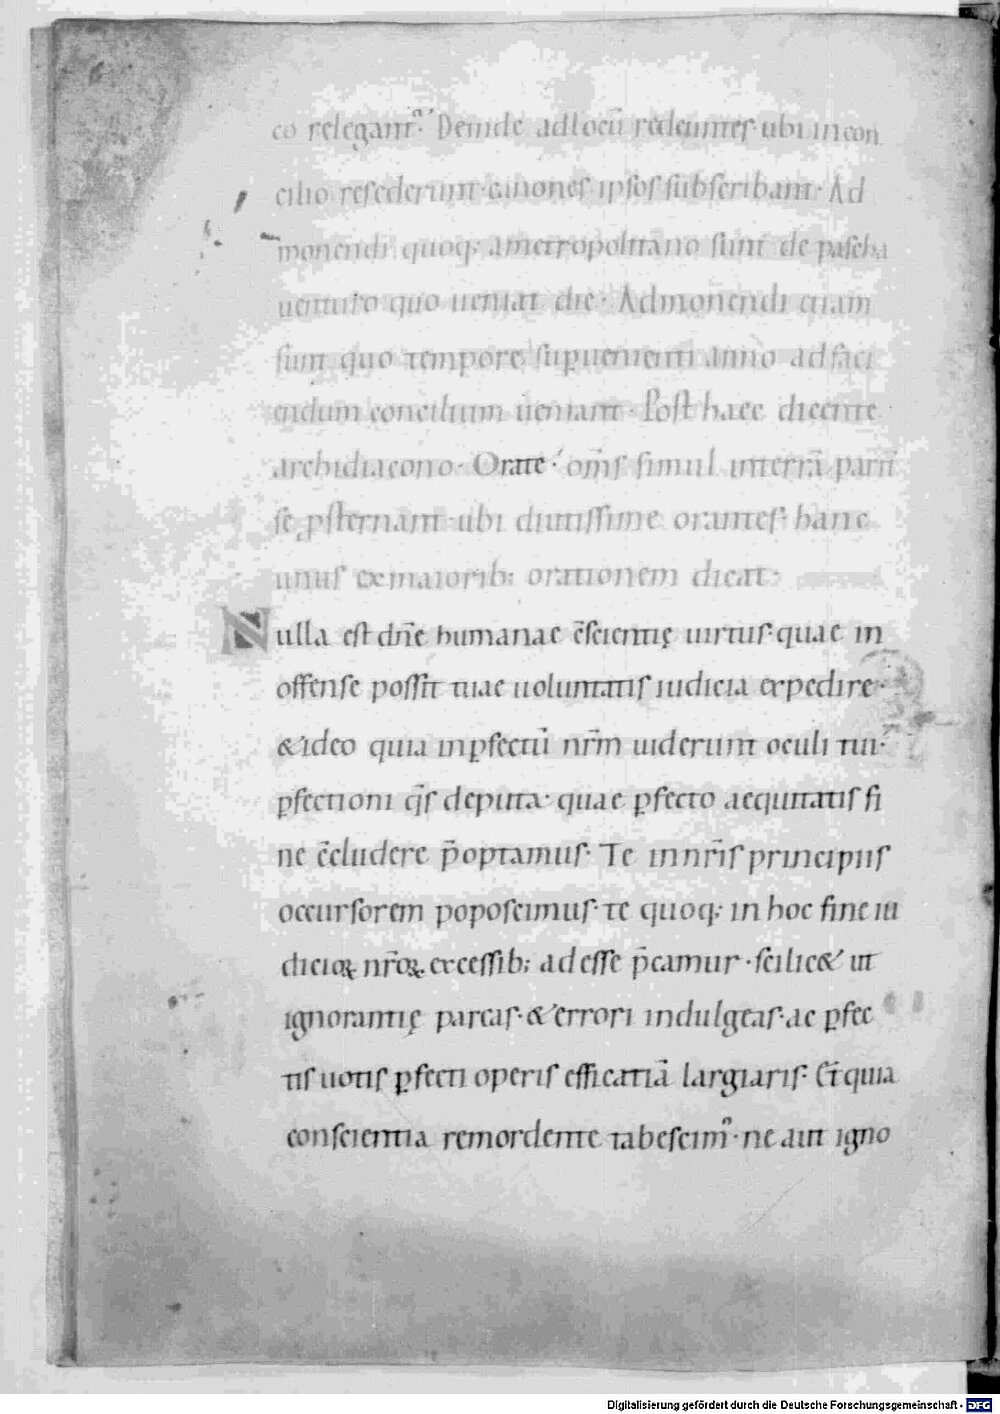 co relegant᷑. Deinde ad locū redeuntes. ubi in con
cilio resederunt. canones ipsos subscribant. Ad
monendi quoq; a metropolitano sunt de pascha
uenturo quo ueniat die. Admonendi etiam
sunt quo tempore supuenienti anno ad faci
endum concilium ueniant. Post haec dicente
archidiacono. Orate. om̄s simul in terrā pariť
se ꝓsternant. ubi diutissime orantes. hanc
unus ex maiorib; orationem dicat.
Nulla est dn̄e humanae c̄scientię uirtus. quae in
offense possit tuae uoluntatis iudicia expedire.
& ideo quia inꝑfectū nr̄m uiderunt oculi tui.
ꝑfectioni q̄s deputa. quae ꝑfecto aequitatis fi
ne c̄cludere p̄optamus. Te in nr̄is principiis
occursorem poposcimus. te quoq; in hoc fine iu
dicioꝝ nr̄oꝝ excessib; adesse p̄camur. scilic& ut
ignorantię parcas. & errori indulgeas. ac ꝑfec
tis uotis ꝑfecti operis efficatiā largiaris. Et quia
conscientia remordente tabescim᷒. ne aut igno
Digitalisierung gefördert durch die Deutsche Forschungsgemeinschaft - DFG